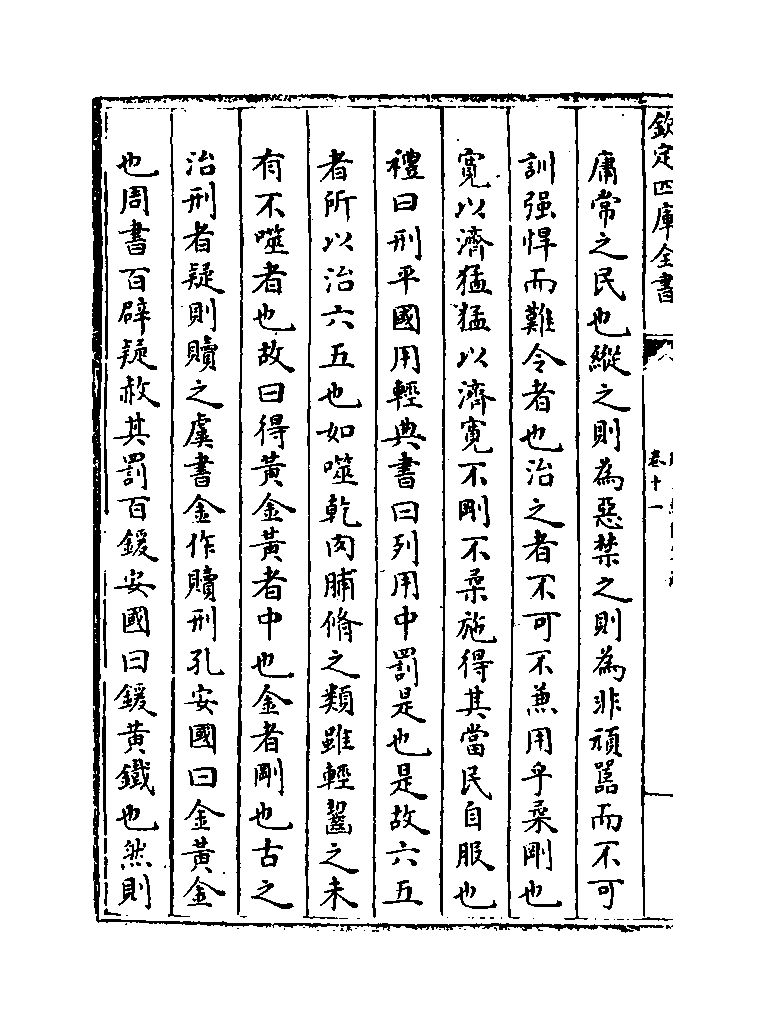 欽定四庫全書
卷十一
庸常之民也縱之則為惡禁之則為非頑嚚而不可
訓强悍而難令者也治之者不可不兼用乎柔剛也
寛以濟猛猛以濟寛不剛不柔施得其當民自服也
禮曰刑平國用輕典書曰列用中罰是也是故六五
者所以治六五也如噬乾肉脯脩之類雖輕齧之未
有不噬者也故曰得黃金黃者中也金者剛也古之
治刑者疑則贖之虞書金作贖刑孔安國曰金黃金
也周書百辟疑赦其罰百鍰安國曰鍰黃鐵也然則